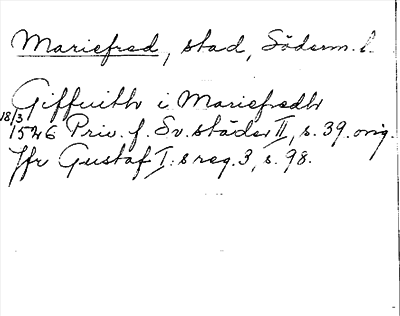 Mariefred, stad, Söderm. l.
Giffuith i Mariefredh
18/3 1526 Priv. f. Sv. städer II, s. 39. orig.
Jfr Gustaf I:s reg. 3, s. 98.